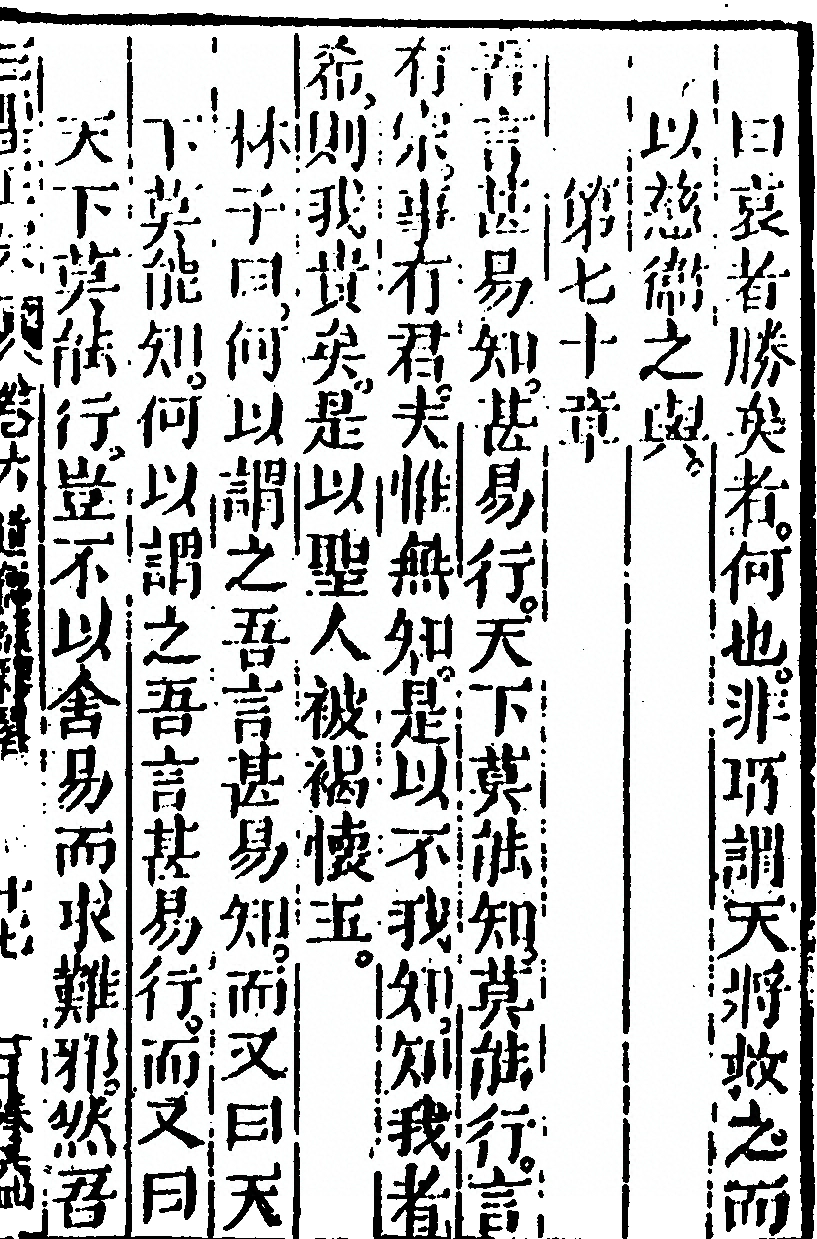 曰哀者勝矣者。何也。非所謂天將救之。而
以慈衞之與。
第七十章
吾言甚易知。甚易行。天下莫能知。莫能行。言
有宗。事有君。夫惟無知。是以不我知。知我者
希。則我貴矣。是以聖人被褐懷玉。
林子曰。何以謂之吾言甚易知。而又曰天
下莫能知。何以謂之吾言甚易行。而又曰
天下莫能行。豈不以舍易而求難邪。然吾